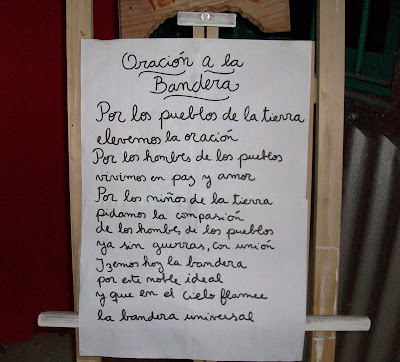 Oración a la
Bandera
Por los pueblos de la tierra
elevemos la oración
Por los hombes de los pueblos
vivimos en paz y amor
Por los niños de la tierra
pidamos la compasión
de los hombes de los pueblos
ya sin guerras, con unión
Izemos hoy la bandera
por este noble ideal
y que en el cielo flamee
la bandera universal